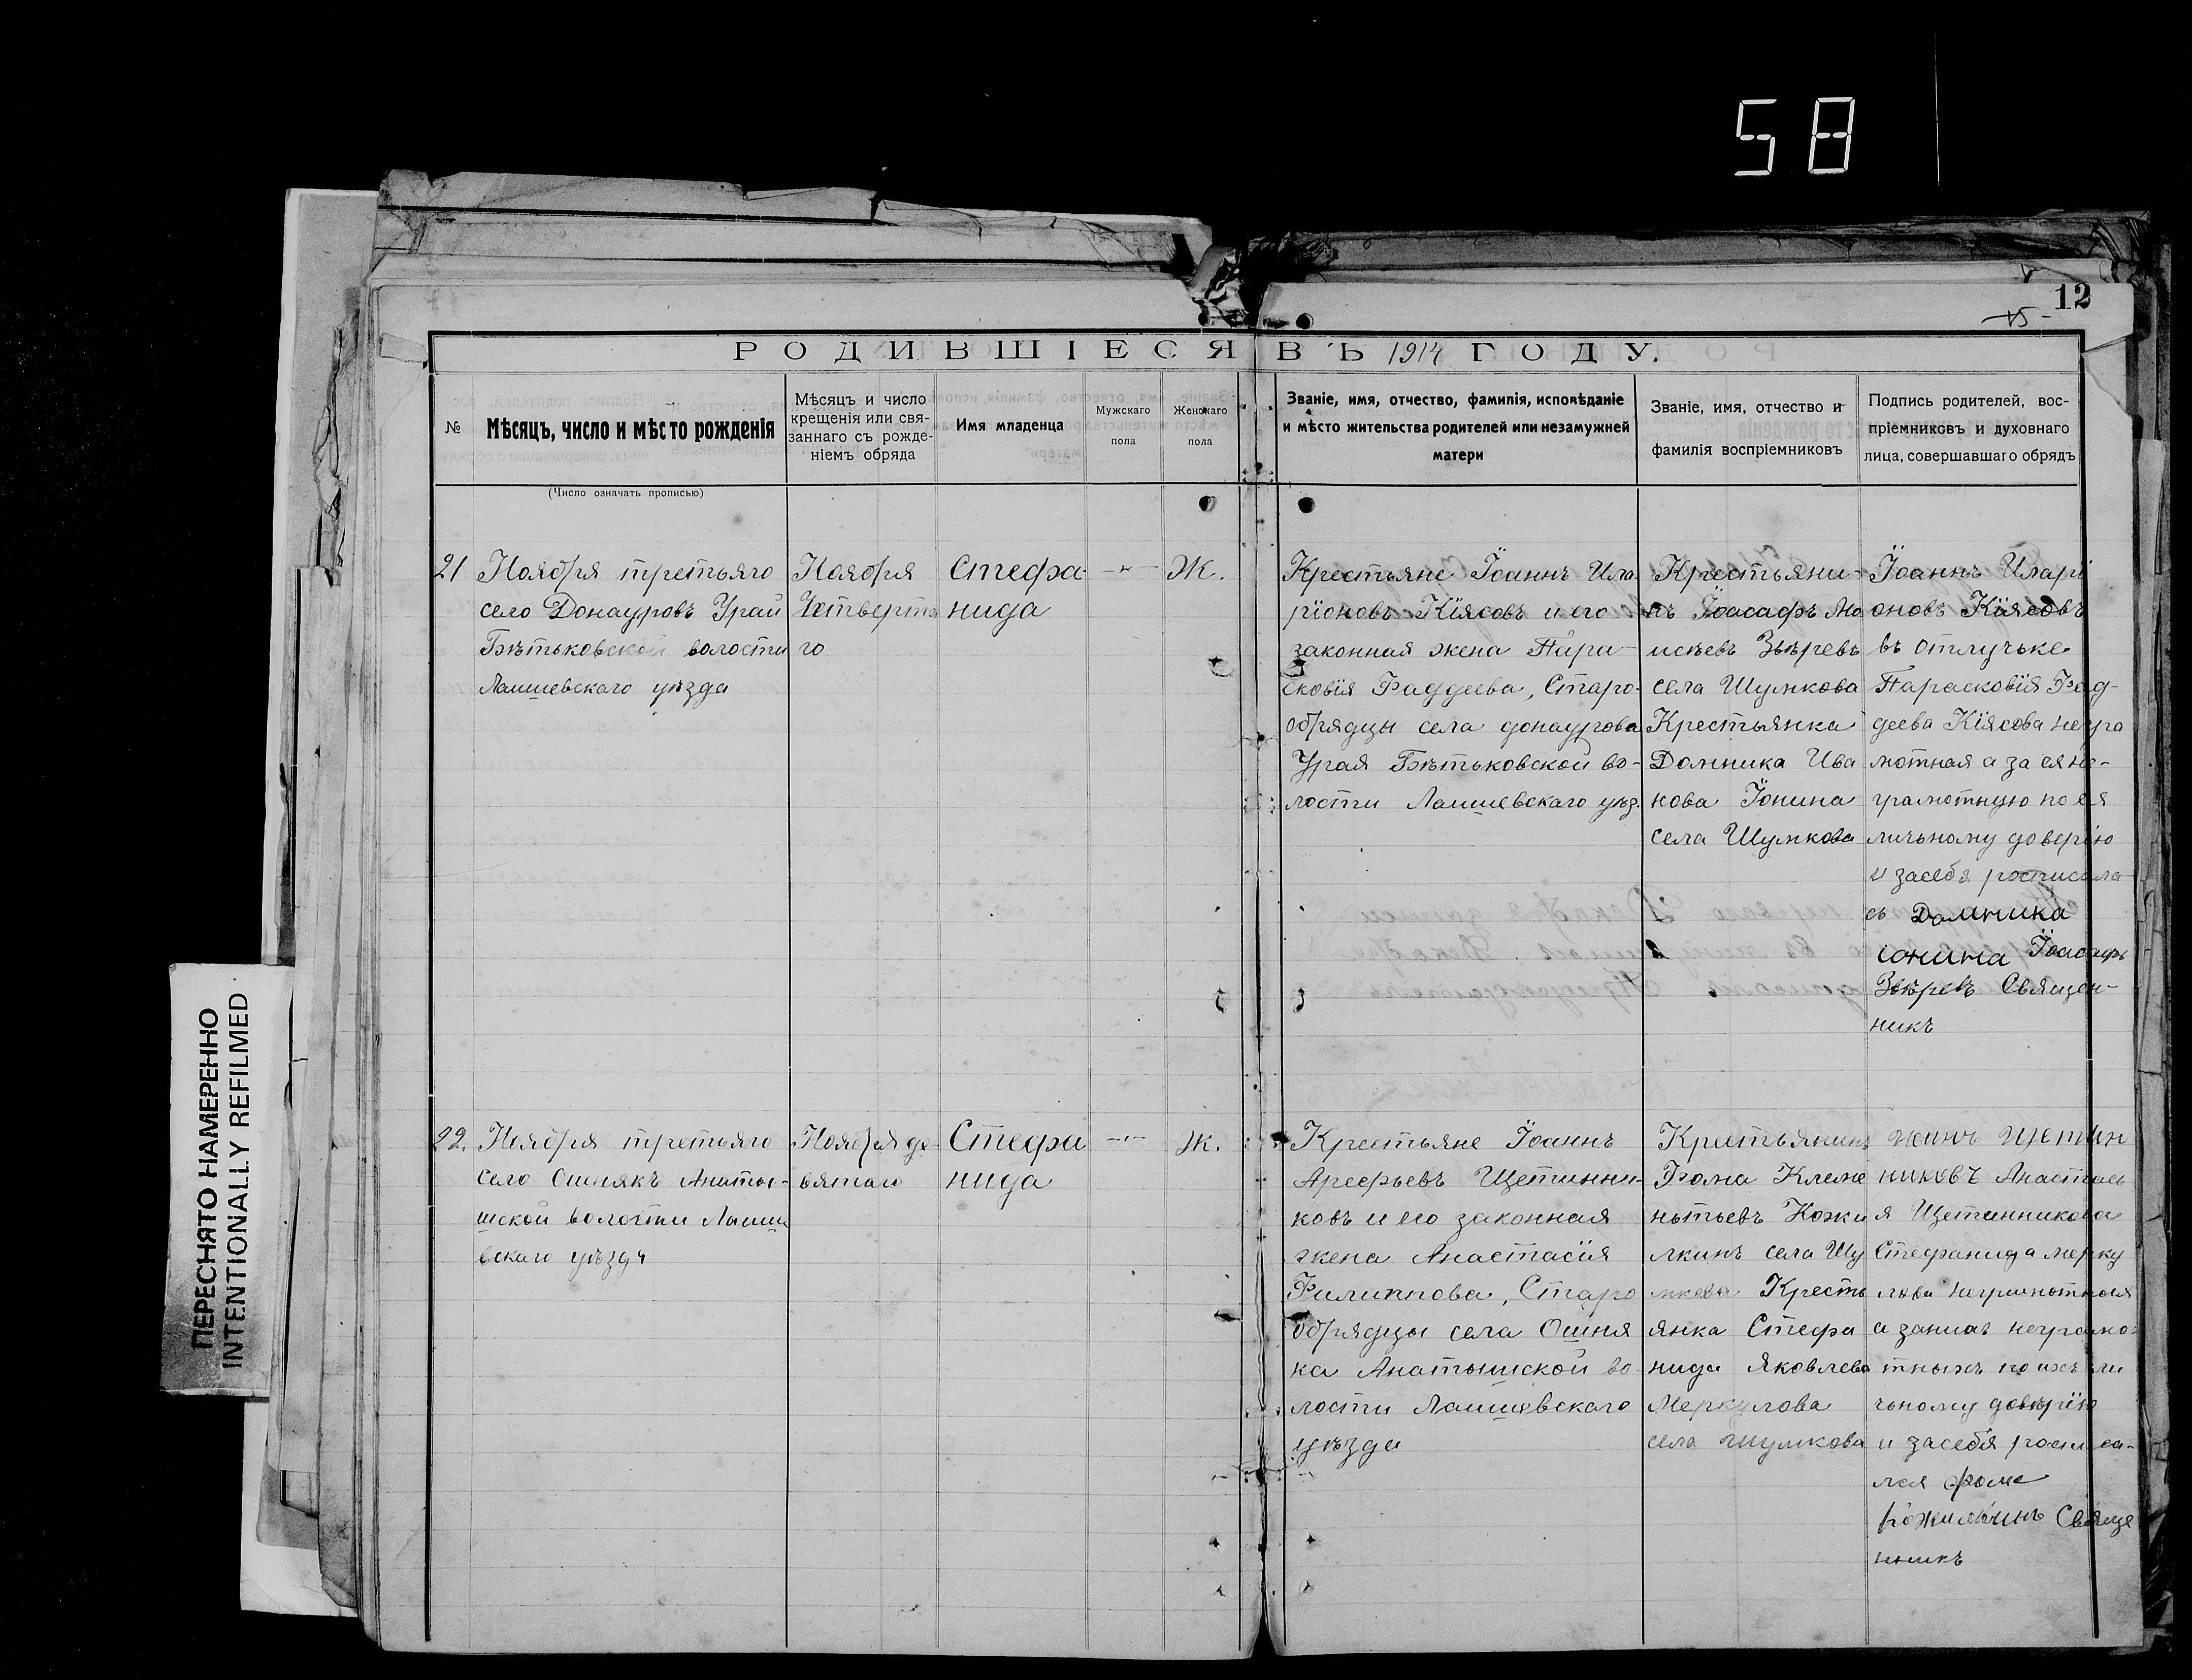 58
12
15
РОДИВШІЕСЯ ВЪ 1914 ГОДУ.
№
Мѣсяцъ, число и мѣсто рожденія
(Число означать прописью)
Мѣсяцъ и число
крещенія или свя-
заннаго съ рожде-
ніемъ обряда
Имя младенца
Мужскаго
пола
Женскаго
пола
Званіе, имя, отчество, фамилія, исповѣданіе
и мѣсто жительства родителей или незамужней
матери
Званіе, имя, отчество и
фамилія воспріемниковъ
Подпись родителей, вос-
пріемниковъ и духовнаго
лица, совершавшаго обрядъ
21
Ноября третьяго
село Донауровъ Урай
Бѣтьковской волости
Лаишевскаго уѣзда
Ноября
Четверта
го
Стефа-
нида
Ж.
Крестьяне Іоаннъ Ила-
ріоновъ Кіясовъ и его
законная жена Пара-
сковія Фаддеева, Старо-
обрядцы села донаурова
Урая Бѣтьковской во-
лости Лаишевскаго уѣз.
Крестьяни-
нъ Іоасафъ Мо
исѣевъ Звѣревъ
села Шумкова
Крестьянка
Домника Ива
нова Іонина
села Шумкова
Іоаннъ Иларі
оновъ Кіясовъ
въ отлучьке
Парасковія Фад-
деева Кіясова негра
мотная а за ея не-
грамотную по ея
личьному доверію
и засебя росписала
съ Домника
ионина Іоасафъ
Звѣревъ Священ-
никъ
22.
Ноября третьяго
село Ошнякъ Анаты-
шской волости Лаише
вскаго уѣзда
Ноября де-
вятаго
Стефа
нида
Ж.
Крестьяне Іоаннъ
Арефьевъ Щетинни-
ковъ и его законная
жена Анастасія
Филиппова, Старо
обрядцы села Ошня
ка Анатышской во
лости Лаишевскаго
уѣзда
Крестьянинъ
Фома Клеме
нтьевъ Кожи
лкинъ села Шу
мкова Кресть
янка Стефа
нида Яковлева
Меркулова
села шумкова
Щетин
никовъ Анастась
я Щетинникова
Стефанида мерку
лова неграмотная
а заних неграмо
тныхъ по ихъ ли
чьному довѣрію
и засебя росписа-
лся фома
Кожилкинъ Свяще
нникъ
ПЕРЕСНЯТО НАМЕРЕННО
INTENTIONALLY REFILMED